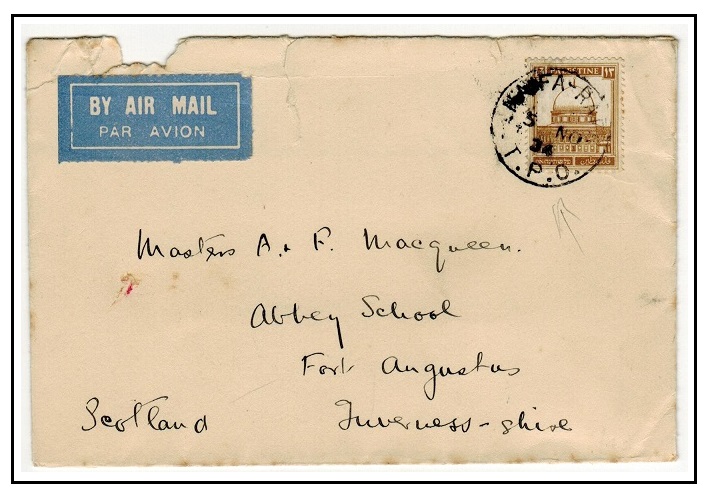 BY AIR MAIL
PAR AVION
PALESTINE
13
T.P.O.
34
Masters A. & F. Macqueen.
Abbey School
Fort Augustus
Scotland Inverness-shire